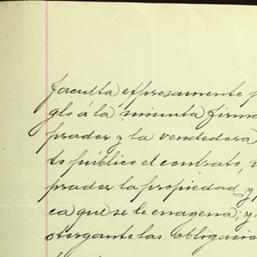 faculta, espresamente p
glo á la minuta firma
prador y la vendedora
to público el contrato,
prador la propiedad, y
ca que se le enagena; y
otorgante las obligacio